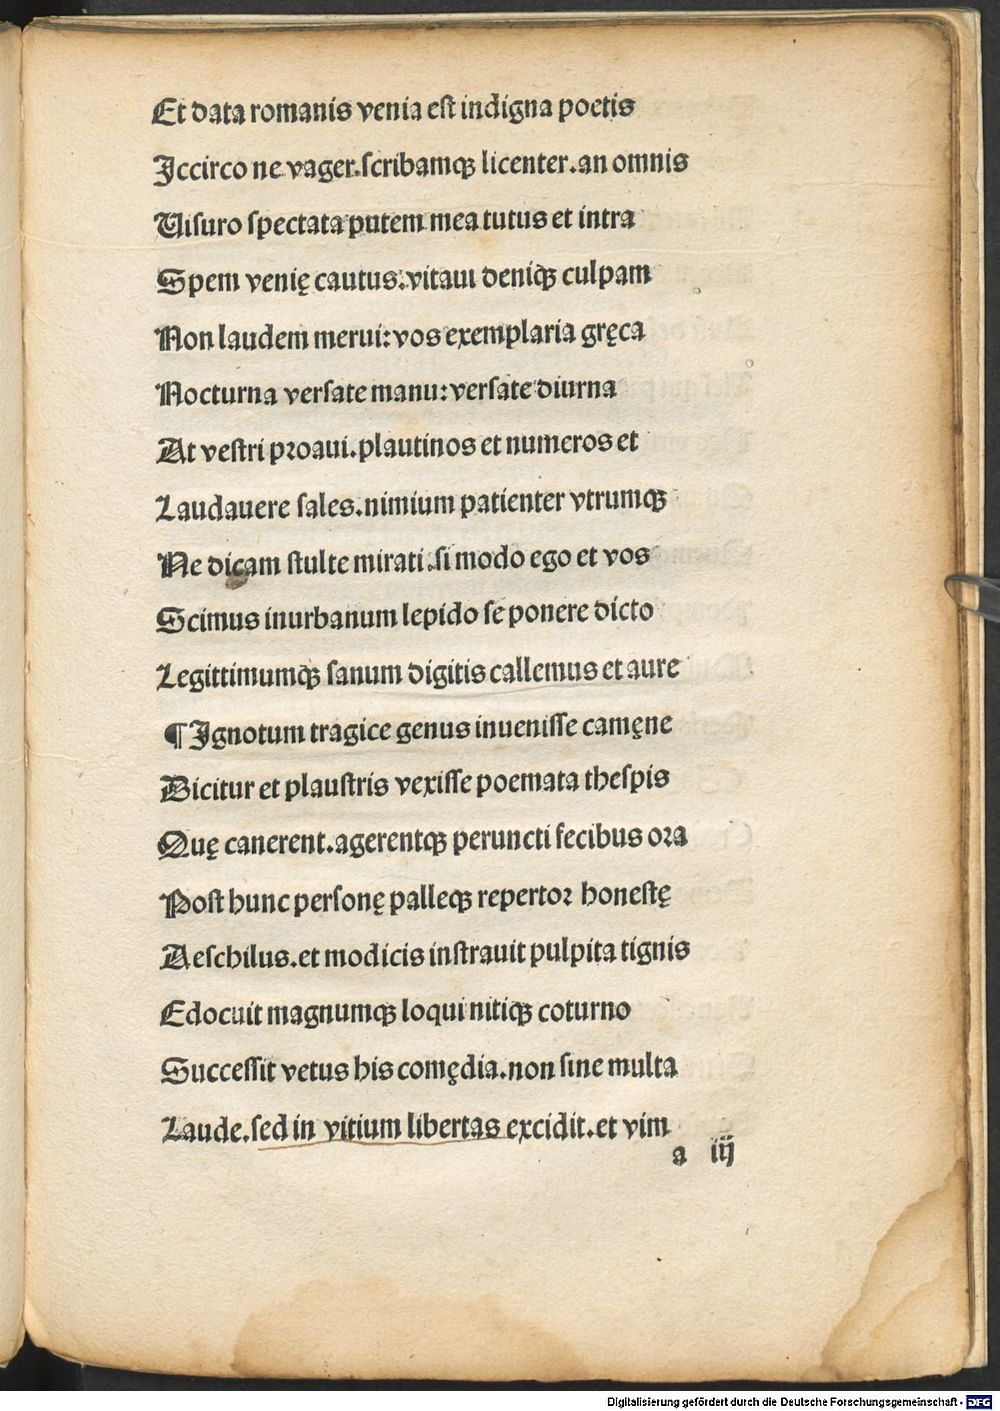 Et data romanis venia est indigna poetis
Iccirco ne vager.scribamqꝫ licenter.an omnis
Uisuro spectata putem mea tutus et intra
Spem venię cautus:vitaui deniqꝫ culpam
Non laudem merui:vos exemplaria gręca
Nocturna versate manu:versate diurna
At vestri proaui.plautinos et numeros et
Laudauere sales.nimium patienter vtrumqꝫ
Ne dicam stulte mirati.si modo ego et vos
Scimus inurbanum lepido se ponere dicto
Legittimumqꝫ sanum digitis callemus et aure
¶ Ignotum tragice genus inuenisse camęne
Dicitur et plaustris vexisse poemata thespis
Quę canerent.agerentqꝫ peruncti fecibus ora
Post hunc personę palleqꝫ repertor honestę
Aeschilus.et modicis instrauit pulpita tignis
Edocuit magnumqꝫ loqui nitiqꝫ coturno
Successit vetus his comędia.non sine multa
Laude.sed in vitium libertas excidit.et vim
a iij
Digitalisierung gefördert durch die Deutsche Forschungsgemeinschaft - DFG